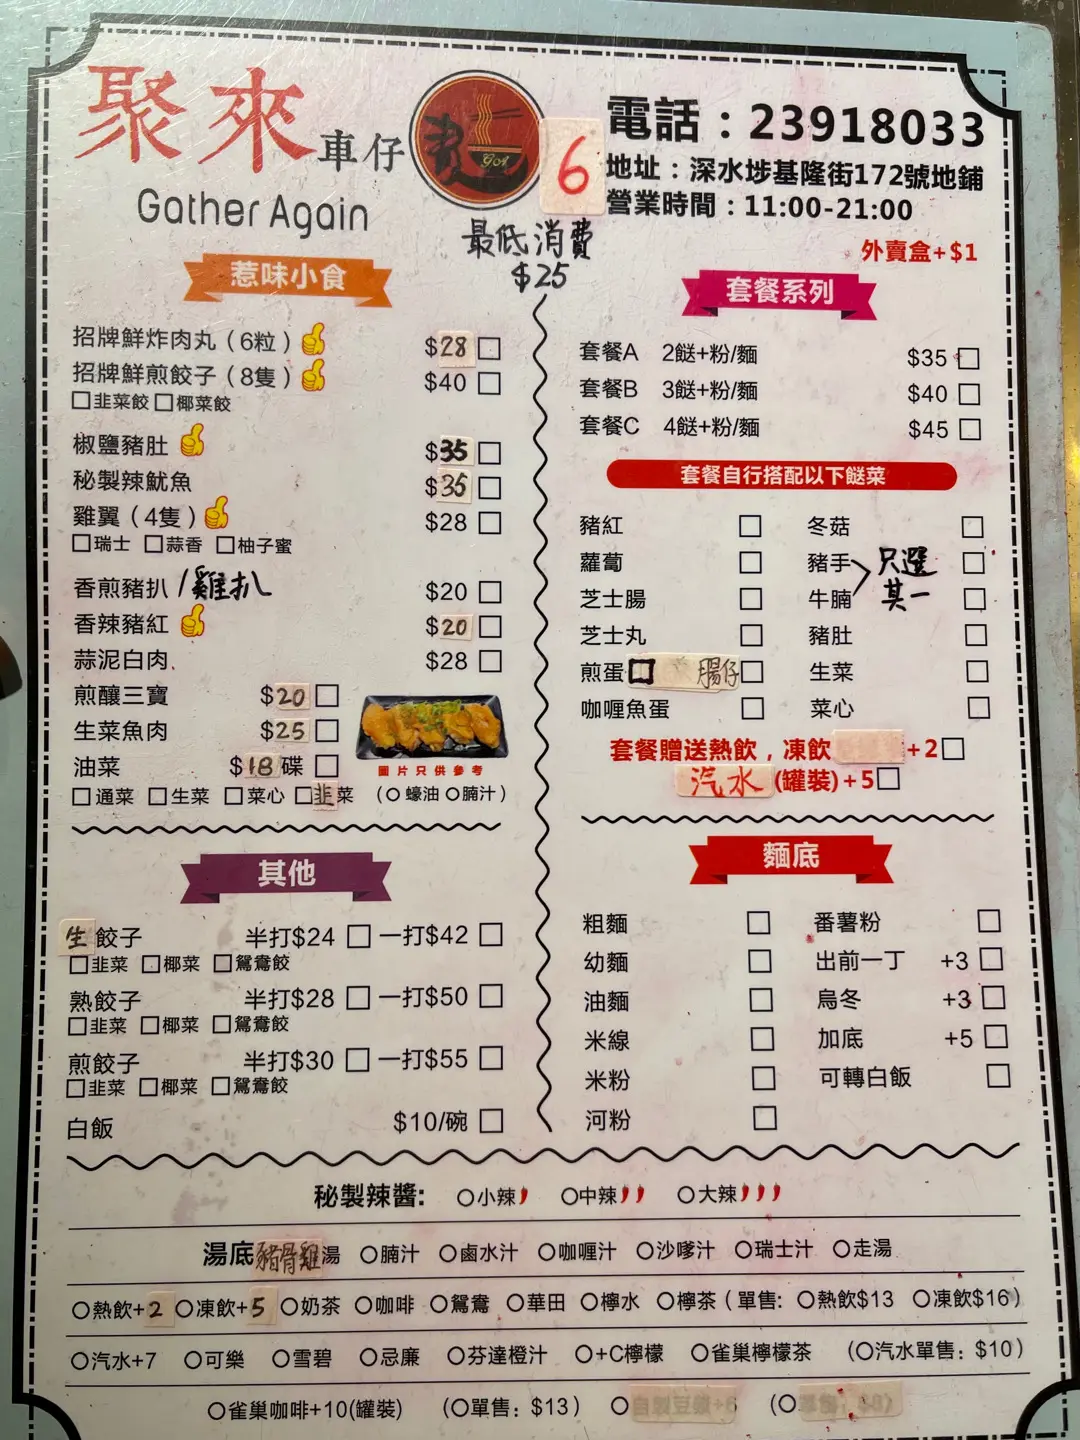 聚來車仔麵
GOA
Gather Again
6
電話：23918033
地址：深水埗基隆街172號地鋪
營業時間：11:00-21:00
最低消費
$25
外賣盒+$1
惹味小食
招牌鮮炸肉丸（6粒） $28 □
招牌鮮煎餃子（8隻） $40 □
□韭菜餃 □椰菜餃
椒鹽豬肚 $35 □
秘製辣魷魚 $35 □
雞翼（4隻） $28 □
□瑞士 □蒜香 □柚子蜜
香煎豬扒/雞扒 $20 □
香辣豬紅 $20 □
蒜泥白肉 $28 □
煎釀三寶 $20 □
生菜魚肉 $25 □
油菜 $18 碟 □
圖片只供參考
□通菜 □生菜 □菜心 □韭菜 （○蠔油 ○腩汁）
其他
生餃子 半打$24 □ 一打$42 □
□韭菜 □椰菜 □鴛鴦餃
熟餃子 半打$28 □ 一打$50 □
□韭菜 □椰菜 □鴛鴦餃
煎餃子 半打$30 □ 一打$55 □
□韭菜 □椰菜 □鴛鴦餃
白飯 $10/碗 □
套餐系列
套餐A 2餸+粉/麵 $35 □
套餐B 3餸+粉/麵 $40 □
套餐C 4餸+粉/麵 $45 □
套餐自行搭配以下餸菜
豬紅 □ 冬菇 □
蘿蔔 □ 豬手 □
芝士腸 □ 牛腩 □
只選
其一
芝士丸 □ 豬肚 □
煎蛋 □ 腸仔 □ 生菜 □
咖喱魚蛋 □ 菜心 □
套餐贈送熱飲，凍飲 +2□
汽水(罐裝)+5□
麵底
粗麵 □ 番薯粉 □
幼麵 □ 出前一丁 +3 □
油麵 □ 烏冬 +3 □
米線 □ 加底 +5 □
米粉 □ 可轉白飯 □
河粉 □
秘製辣醬: ○小辣 ○中辣 ○大辣
湯底 豬骨雞湯 ○腩汁 ○鹵水汁 ○咖喱汁 ○沙嗲汁 ○瑞士汁 ○走湯
○熱飲+2 ○凍飲+5 ○奶茶 ○咖啡 ○鴛鴦 ○華田 ○檸水 ○檸茶（單售: ○熱飲$13 ○凍飲$16）
○汽水+7 ○可樂 ○雪碧 ○忌廉 ○芬達橙汁 ○+C檸檬 ○雀巢檸檬茶 （○汽水單售: $10）
○雀巢咖啡+10(罐裝) （○單售: $13） ○ （○